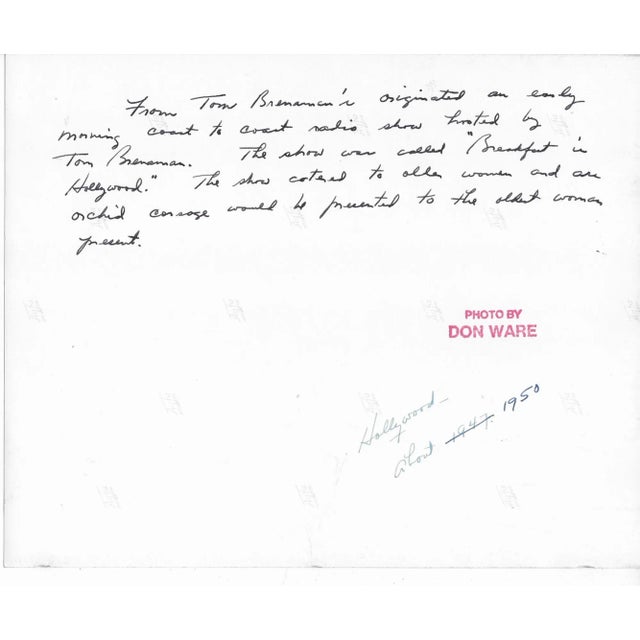 From Tom Brenaman's originated an early
morning coast to coast radio show hosted by
Tom Brenaman. The show was called "Breakfast in
Hollywood." The show catered to older women and an
orchid corsage would be presented to the oldest woman
present.
PHOTO BY
DON WARE
Hollywood—
About 1947. 1950